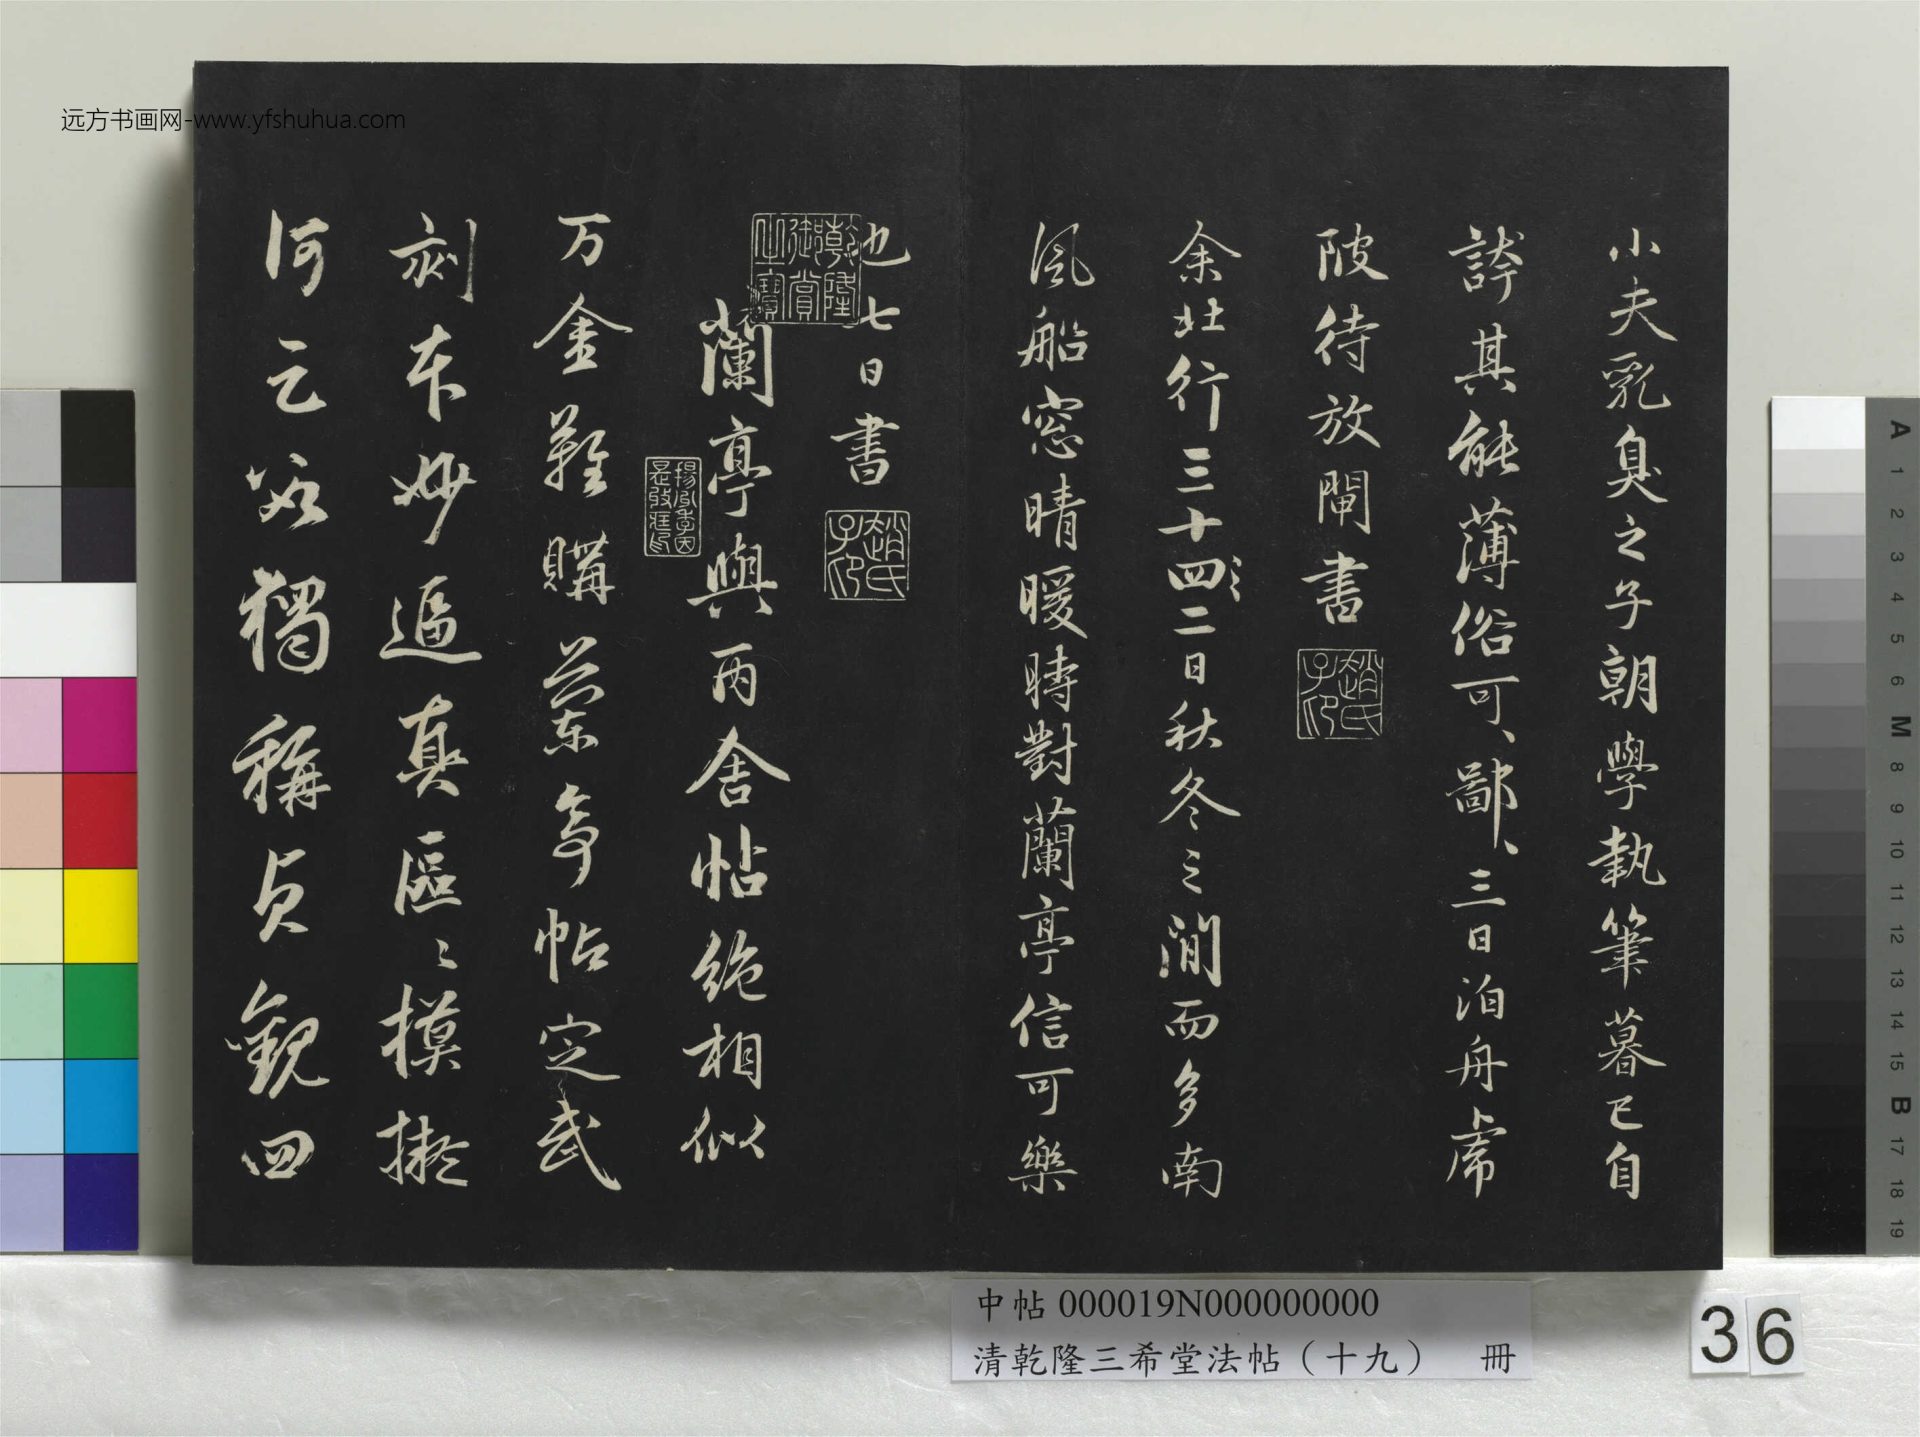 远方书画网-www.yfshuhua.com
小夫乳臭之子朝學執筆暮已自
誇其能薄俗可、鄙、三日泊舟虎
陂待放閘書
趙氏子印
余北行三十四二日秋冬之間而多南
風船窓晴暖時對蘭亭信可樂
也七日書
趙氏子印
乾隆御賞之寶
蘭亭與丙舍帖絶相似
万金難購蘭亭帖定武
刻本妙逼真區〻摸擬
何足爲獨稱貞觀四
中帖 000019N000000000
清乾隆三希堂法帖（十九） 冊
36
A 1 2 3 4 5 6 M 8 9 10 11 12 13 14 15 B 17 18 19